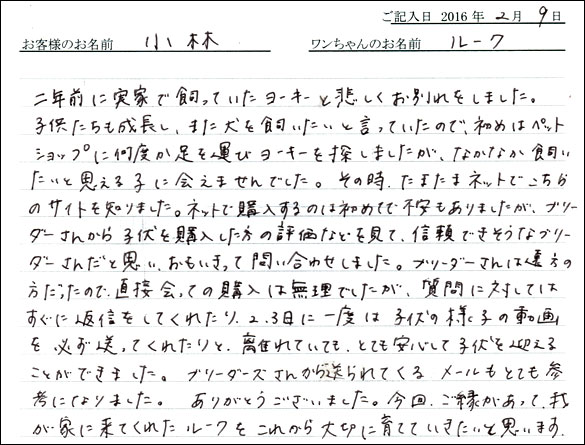 ご記入日 2016 年 2 月 9 日
お客様のお名前 小林 ワンちゃんのお名前 ルーク
二年前に実家で飼っていたヨーキーと悲しくお別れをしました。
子供たちも成長し、また犬を飼いたいと言っていたので、初めはペット
ショップに何度か足を運びヨーキーを探しましたが、なかなか飼い
たいと思える子に会えませんでした。その時、たまたまネットでこちら
のサイトを知りました。ネットで購入するのは初めてで不安もありましたが、ブリー
ダーさんから子犬を購入した方の評価などを見て、信頼できそうなブリー
ダーさんだと思い、おもいきって問い合わせしました。ブリーダーさんは遠方の
方だったので、直接会っての購入は無理でしたが、質問に対しては
すぐに返信をしてくれたり、2、3日に一度は子犬の様子の動画
を必ず送ってくれたりと、離れていても、とても安心して子犬を迎える
ことができました。ブリーダーズさんから送られてくるメールもとても参
考になりました。ありがとうございました。今回、ご縁があって、我
が家に来てくれたルークをこれから大切に育てていきたいと思います。